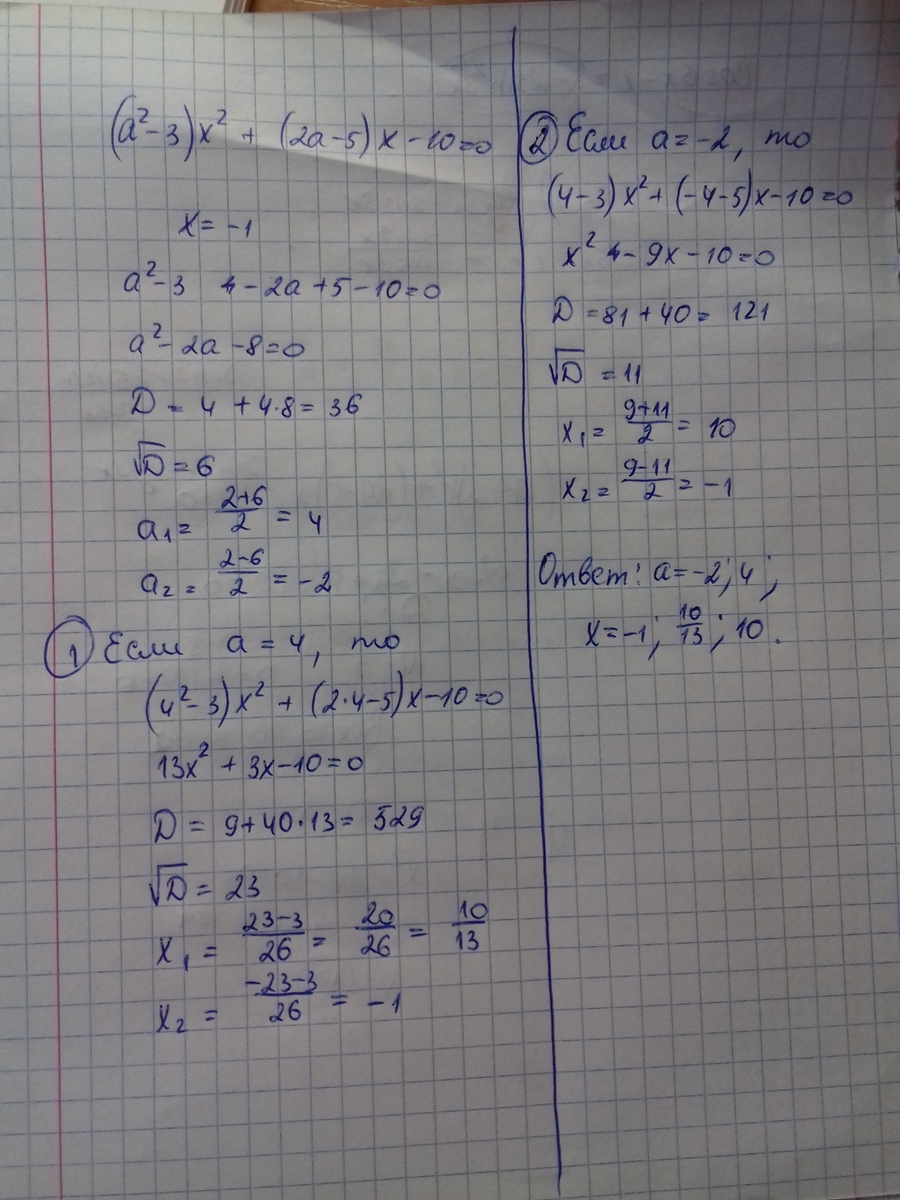 (a²-3)x² + (2a-5)x-10=0
x=-1
a²-3 -2a+5-10=0
a²-2a-8=0
D = 4+4·8=36
√D=6
a₁= (2+6)/2 = 4
a₂= (2-6)/2 = -2
① Если a=4, то
(4²-3)x² + (2·4-5)x-10=0
13x²+3x-10=0
D = 9+40·13= 529
√D = 23
x₁ = (23-3)/26 = 20/26 = 10/13
x₂ = (-23-3)/26 = -1
② Если a=-2, то
(4-3)x²+(-4-5)x-10=0
x² -9x-10=0
D=81+40= 121
√D =11
x₁= (9+11)/2 = 10
x₂= (9-11)/2 = -1
Ответ: a=-2; 4;
x=-1; 10/13; 10.